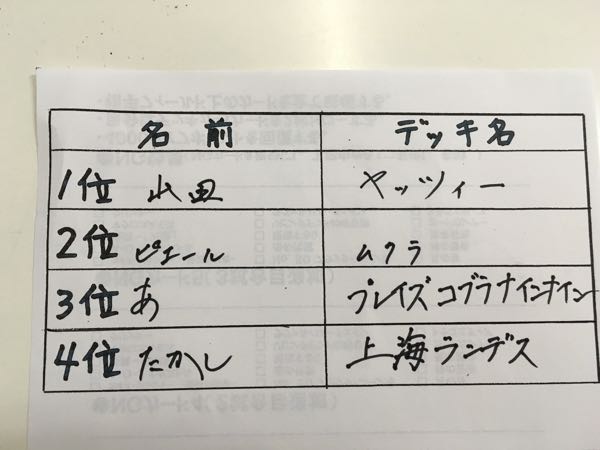 名前 デッキ名
1位 山田 ヤッツィー
2位 ピエール ムクラ
3位 あ ブレイズコブラナインナイン
4位 たかし 上海ランデス